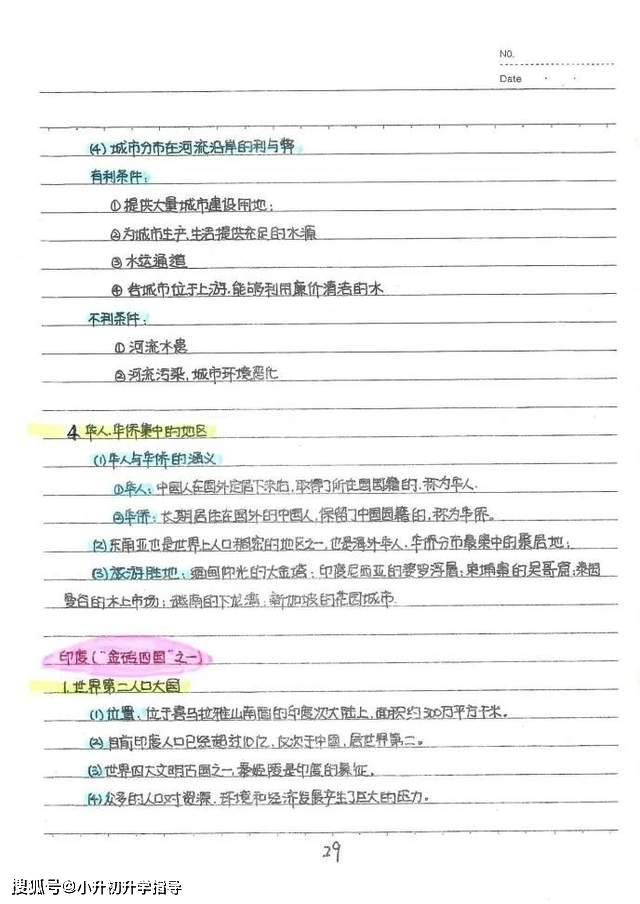 NO.
Date
(4) 城市分布在河流沿岸的利与弊
有利条件:
①提供大量城市建设用地;
②为城市生产、生活提供充足的水源
③水运通道
④各城市位于上游,能够利用廉价清洁的水
不利条件:
①河流水患
②河流污染,城市环境恶化
4 华人、华侨集中的地区
(1)华人与华侨的涵义
①华人: 中国人在国外定居下来后,取得了所在国国籍的,称为华人.
②华侨: 长期居住在国外的中国人,保留了中国国籍的,称为华侨。
(2)东南亚也是世界上人口稠密的地区之一,也是海外华人、华侨分布最集中的聚居地;
(3)旅游胜地: 缅甸仰光的大金塔; 印度尼西亚的婆罗浮屠; 柬埔寨的吴哥窟;泰国
曼谷的水上市场; 越南的下龙湾; 新加坡的花园城市.
印度("金砖四国"之一)
1.世界第二人口大国
(1)位置、位于喜马拉雅山南侧的印度次大陆上,面积约300万平方千米。
(2)目前印度人口已经超过10亿,仅次于中国,居世界第二。
(3)世界四大文明古国之一,泰姬陵是印度的象征。
(4)众多的人口对资源、环境和经济发展产生了巨大的压力。
29
搜狐号@小升初升学指导